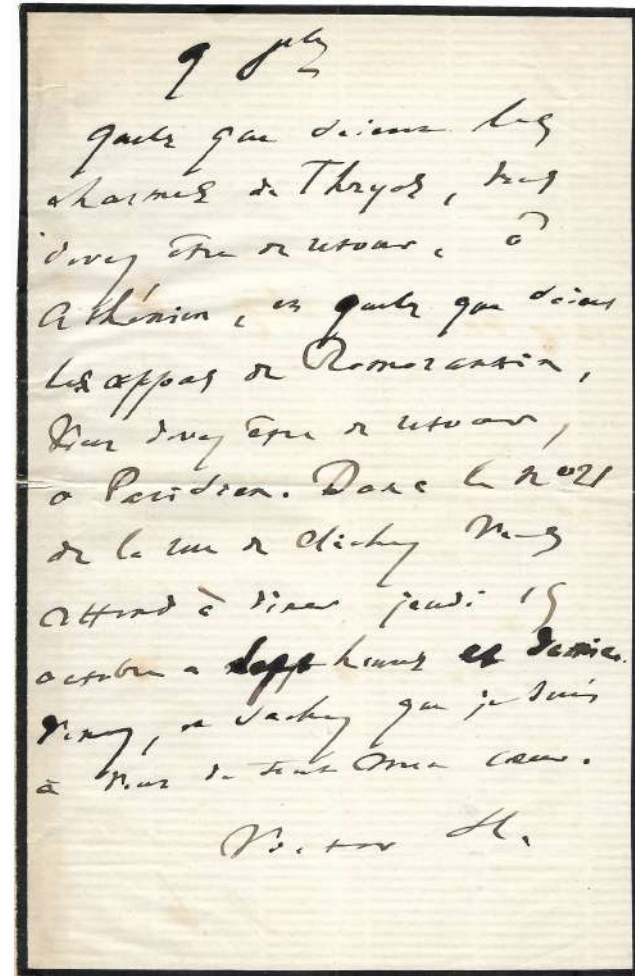 9 8bre
quels que soient les
charmes de Thryos, vous
devez être de retour, ô
Athénien, et quels que soient
les appas de Romorantin,
vous devez être de retour,
ô Parisien. Donc le n° 21
de la rue de Clichy vous
attend à dîner jeudi 15
octobre à sept heures et demie.
Venez, et sachez que je suis
à vous de tout mon cœur.
Victor H.